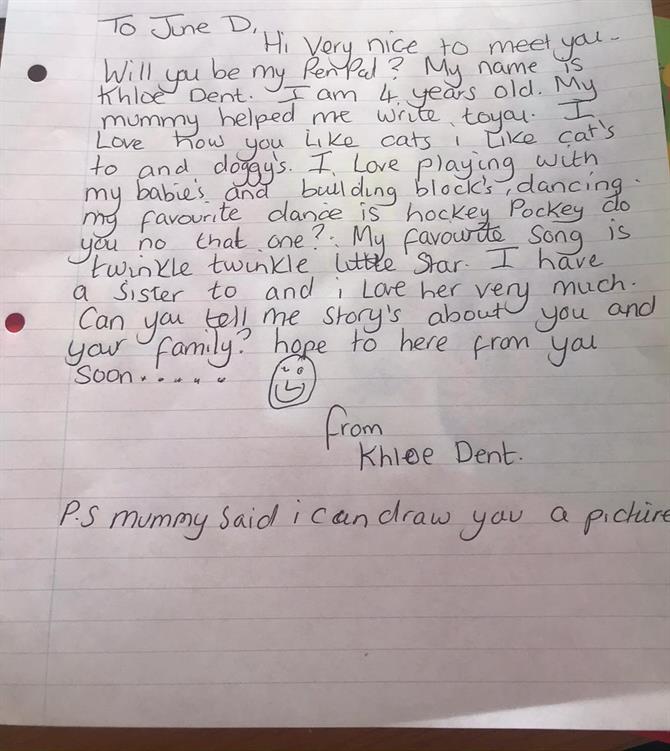 To June D,
Hi Very nice to meet you-
Will you be my PenPal? My name is
Khloe Dent. I am 4 years old. My
mummy helped me write toyou. I
Love how you Like cats i Like cat's
to and doggy's. I Love playing with
my babie's and building block's, dancing.
my favourite dance is hockey Pockey do
you no that one?. My favourite Song is
twinkle twinkle little Star. I have
a Sister to and i Love her very much.
Can you tell me Story's about you and
your family? hope to here from you
Soon......
from
Khloe Dent.
P.S mummy Said i can draw you a picture